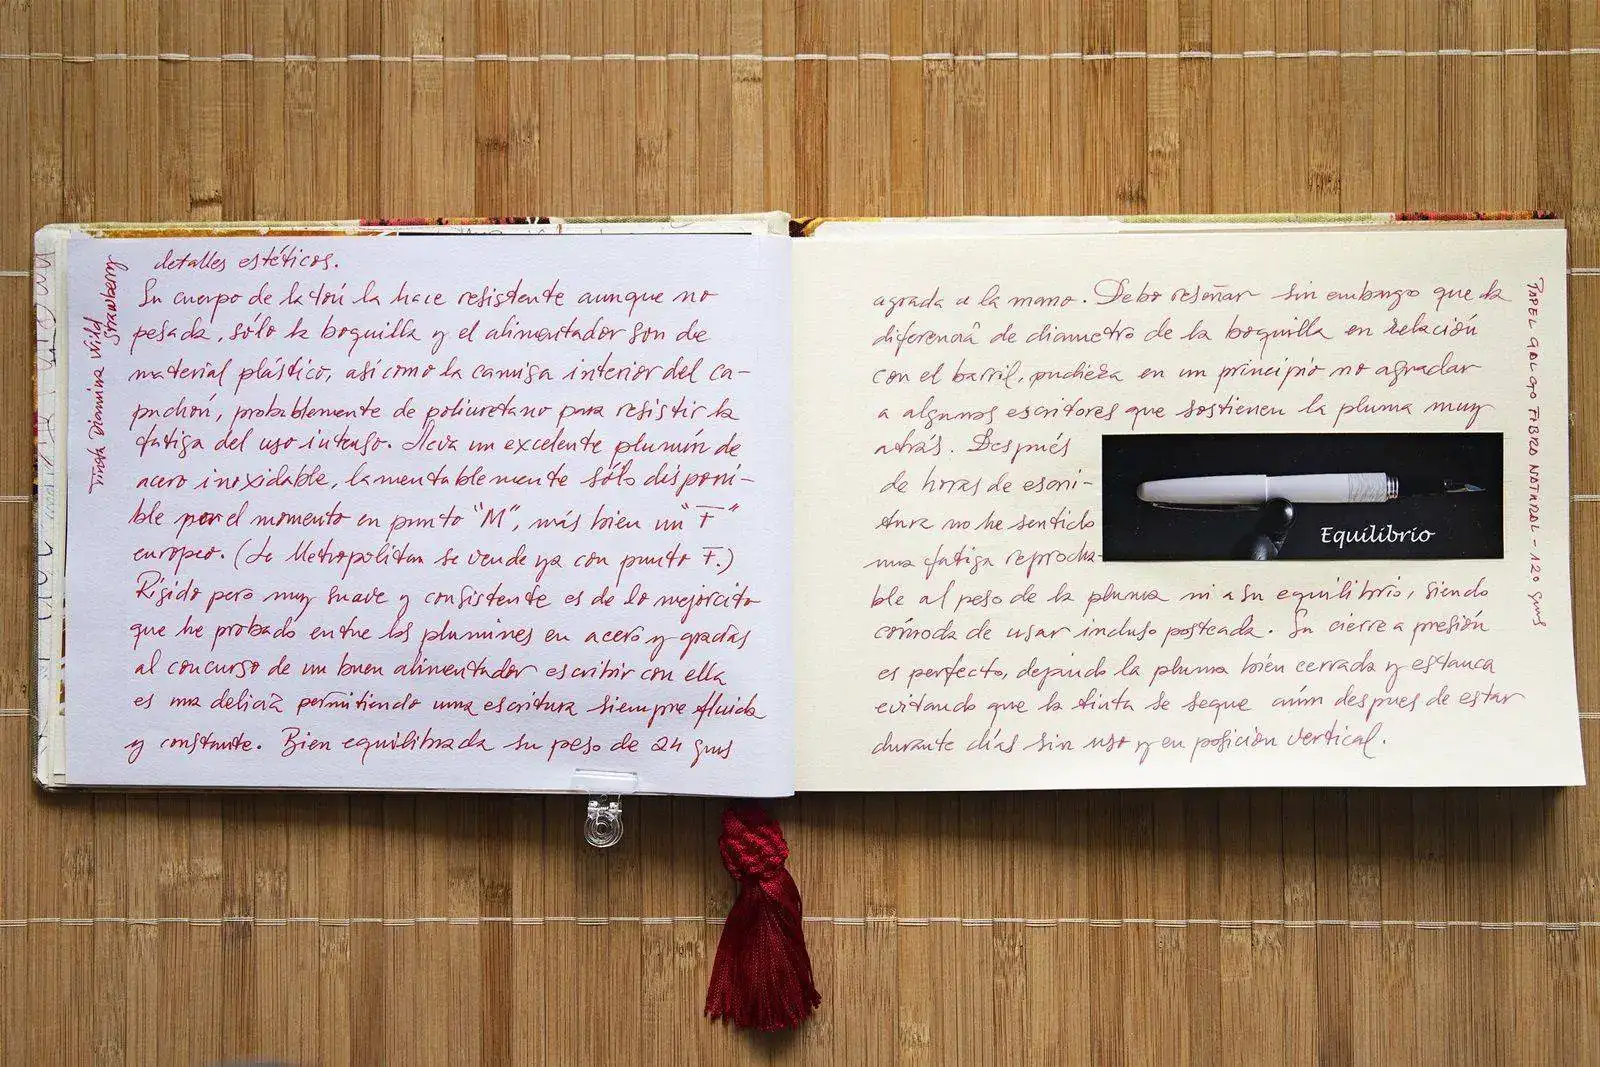 detalles estéticos.
Su cuerpo de latón la hace resistente aunque no
pesada, sólo la boquilla y el alimentador son de
material plástico, asi como la camisa interior del ca-
puchón, probablemente de poliuretano para resistir la
fatiga del uso intenso. Lleva un excelente plumín de
acero inoxidable, lamentablemente sólo disponi-
ble por el momento en punto "M", más bien un "F"
europeo. (La Metropolitan se vende ya con punto F.)
Rígido pero muy suave y consistente es de lo mejorcito
que he probado entre los plumines en acero y gracias
al concurso de un buen alimentador escribir con ella
es una delicia permitiendo una escritura siempre fluida
y constante. Bien equilibrada su peso de 24 gms
Tinta Diamine Wild
Strawberry
agrada a la mano. Debo reseñar sin embargo que la
diferencia de diametro de la boquilla en relación
con el barril, pudiera en un principio no agradar
a algunos escritores que sostienen la pluma muy
atrás. Después
de horas de escri-
tura no he sentido
una fatiga reprocha-
ble al peso de la pluma ni a su equilibrio, siendo
cómoda de usar incluso posteada. Su cierre a presión
es perfecto, dejando la pluma bien cerrada y estanca
evitando que la tinta se seque aún despues de estar
durante días sin uso y en posición vertical.
Equilibrio
PAPEL GALGO FIBRA NATURAL - 120 gms